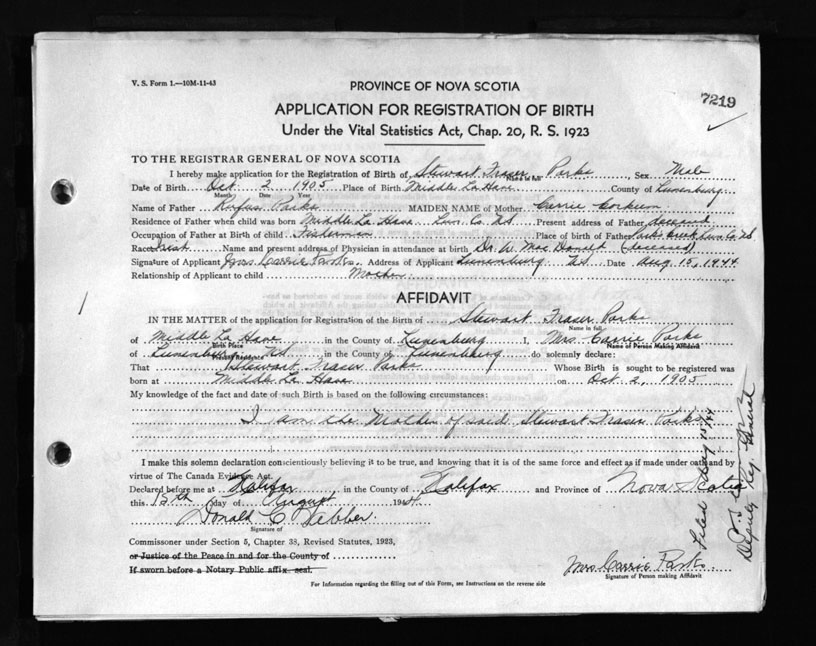 V. S. Form 1.—10M-11-43
PROVINCE OF NOVA SCOTIA
7219
APPLICATION FOR REGISTRATION OF BIRTH
Under the Vital Statistics Act, Chap. 20, R. S. 1923
TO THE REGISTRAR GENERAL OF NOVA SCOTIA
I hereby make application for the Registration of Birth of Stewart Fraser Parks, Sex Male
Name in full
Date of Birth Oct. 2 1905 Place of Birth Middle La Have County of Lunenburg
Month Date Year
Name of Father Rufus Parks MAIDEN NAME of Mother Carrie Corkum
Residence of Father when child was born Middle La Have Lun. Co. N.S. Present address of Father deceased
Occupation of Father at Birth of child Fisherman Place of birth of Father Parks Creek Lun. Co. N.S.
Race Name and present address of Physician in attendance at birth Dr. W. MacDonald (deceased)
Signature of Applicant Mrs. Carrie Parks. Address of Applicant Lunenburg N.S. Date Aug 15, 1944
Relationship of Applicant to child Mother
AFFIDAVIT
IN THE MATTER of the application for Registration of the Birth of Stewart Fraser Parks
Name in full
of Middle La Have in the County of Lunenburg I, Mrs. Carrie Parks
Birth Place Name of Person Making Affidavit
of Lunenburg N.S. in the County of Lunenburg do solemnly declare:
That Stewart Fraser Parks Whose Birth is sought to be registered was
born at Middle La Have on Oct. 2, 1905
My knowledge of the fact and date of such Birth is based on the following circumstances:
I am the Mother of said Stewart Fraser Parks
I make this solemn declaration conscientiously believing it to be true, and knowing that it is of the same force and effect as if made under oath and by
virtue of The Canada Evidence Act.
Declared before me at Halifax in the County of Halifax and Province of Nova Scotia
this 15th day of August 1944
Donald C. Webber
Signature of
Commissioner under Section 5, Chapter 33, Revised Statutes, 1923,
or Justice of the Peace in and for the County of
If sworn before a Notary Public affix seal.
Mrs Carrie Parks
Signature of Person making Affidavit
For Information regarding the filling out of this Form, see Instructions on the reverse side
Filed Aug 15/44
Deputy Reg. General